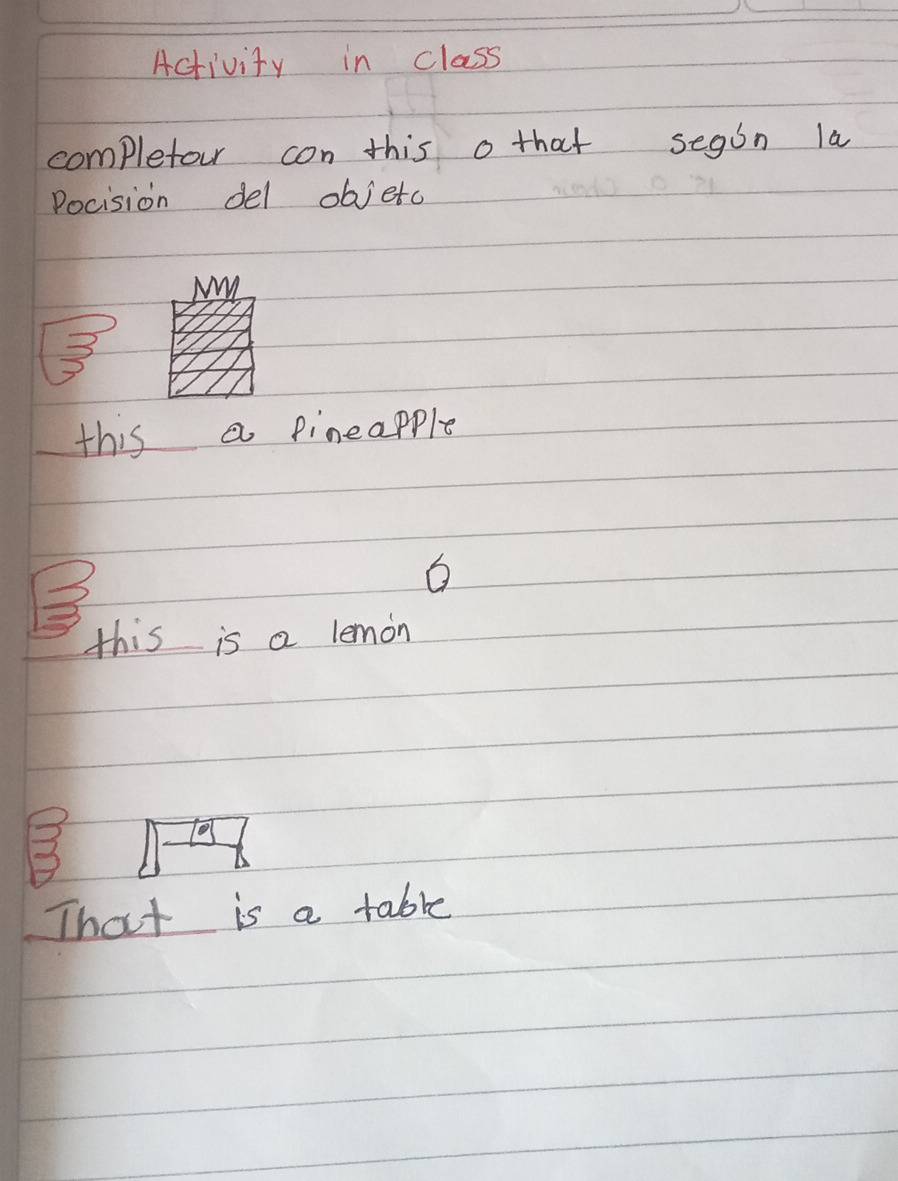 Activity in class
completar con this o that según la
Pocisión del objeto
this a Pineapple
this is a lemón
That is a table